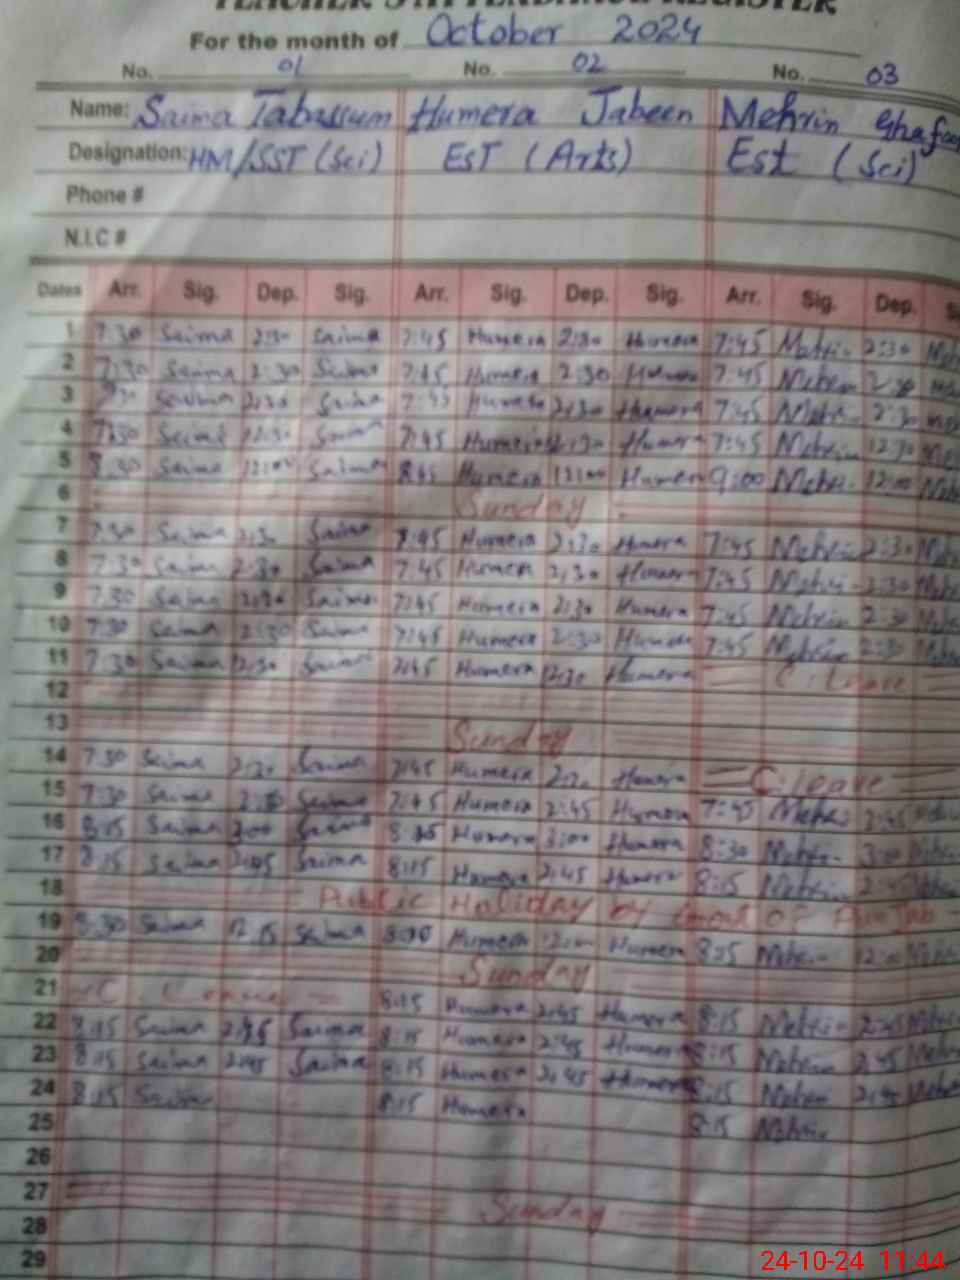 TEACHER'S ATTENDANCE REGISTER
For the month of October 2024
No. 01 No. 02 No. 03
Name: Saima Tabassum Humera Jabeen Mehrin Ghafoor
Designation: HM/SST (Sci) EST (Arts) Est (Sci)
Phone #
N.I.C #
Dates Arr. Sig. Dep. Sig. Arr. Sig. Dep. Sig. Arr. Sig. Dep.
1 7:30 Saima 2:30 Saima 7:45 Humera 2:30 Humera 7:45 Mehrin 2:30
2 7:30 Saima 2:30 Saima 7:45 Humera 2:30 Humera 7:45 Mehrin 2:30
3 Saima 2:30 Saima 7:45 Humera 2:30 Humera 7:45 Mehrin 2:30
4 7:30 Saima 12:30 Saima 7:45 Humera 12:30 Humera 7:45 Mehrin 12:30
5 8:30 Saima 12:00 Saima 8:45 Humera 12:00 Humera 9:00 Mehrin 12:00
6 Sunday
7 7:30 Saima 2:30 Saima 7:45 Humera 2:30 Humera 7:45 Mehrin 2:30
8 7:30 Saima 2:30 Saima 7:45 Humera 2:30 Humera 7:45 Mehrin 2:30
9 7:30 Saima 2:30 Saima 7:45 Humera 2:30 Humera 7:45 Mehrin 2:30
10 7:30 Saima 2:30 Saima 7:45 Humera 2:30 Humera 7:45 Mehrin 2:30
11 7:30 Saima 12:30 Saima 7:45 Humera 12:30 Humera C. Leave
12
13 Sunday
14 7:30 Saima 2:30 Saima 7:45 Humera 2:30 Humera C. Leave
15 7:30 Saima Saima 7:45 Humera 2:45 Humera 7:45 Mehrin 2:45
16 8:15 Saima 3:00 Saima 8:15 Humera 3:00 Humera 8:30 Mehrin 3:00
17 8:15 Saima 2:45 Saima 8:15 Humera 2:45 Humera 8:15 Mehrin 2:45
18 Public Holiday by Govt of Punjab
19 8:30 Saima 12:15 Saima 8:30 Humera 12:00 Humera 8:15 Mehrin 12:00
20 Sunday
21 C. Leave 8:15 Humera 2:45 Humera 8:15 Mehrin 2:45
22 8:15 Saima 2:45 Saima 8:15 Humera 2:45 Humera 8:15 Mehrin 2:45
23 8:15 Saima 2:45 Saima 8:15 Humera 2:45 Humera 8:15 Mehrin 2:45
24 8:15 Saima 8:15 Humera 8:15 Mehrin
25
26
27 Sunday
28
29
24-10-24 11:44